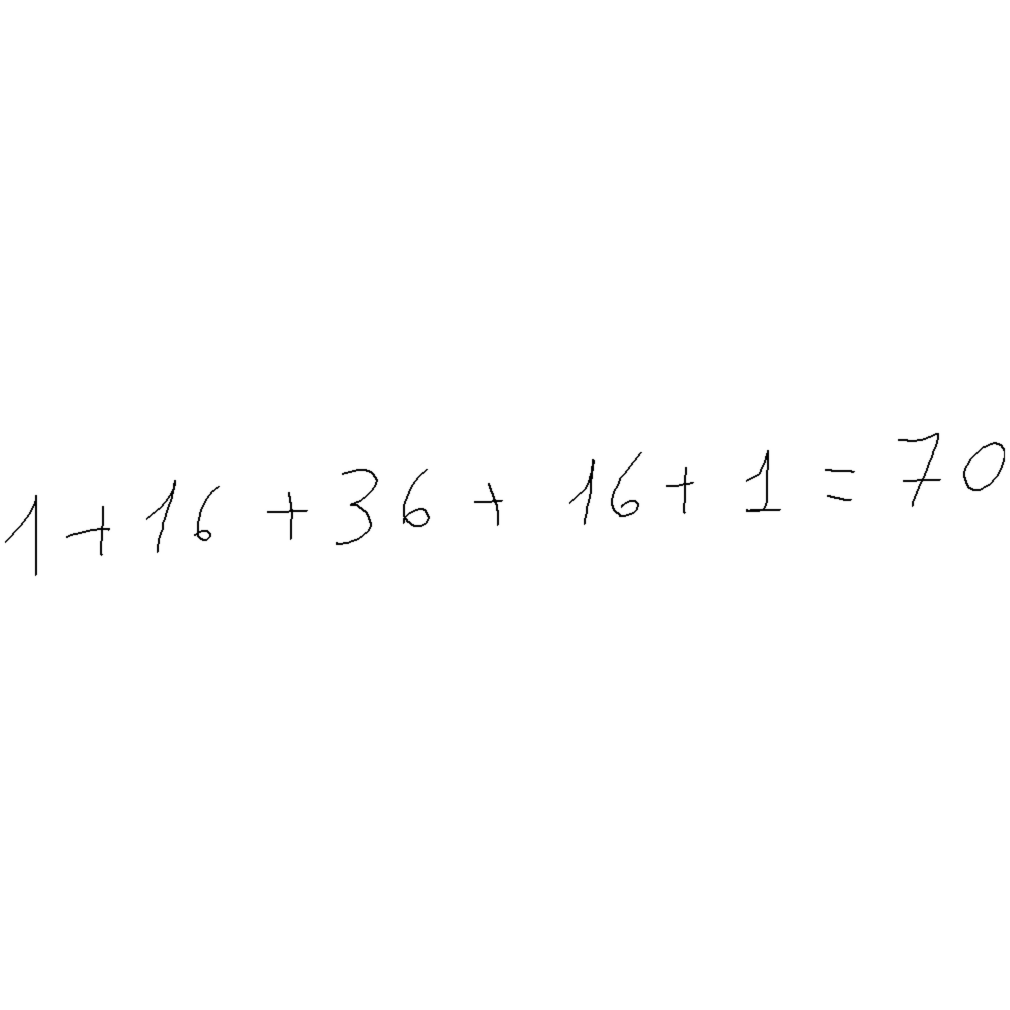 1 + 16 + 36 + 16 + 1 = 70